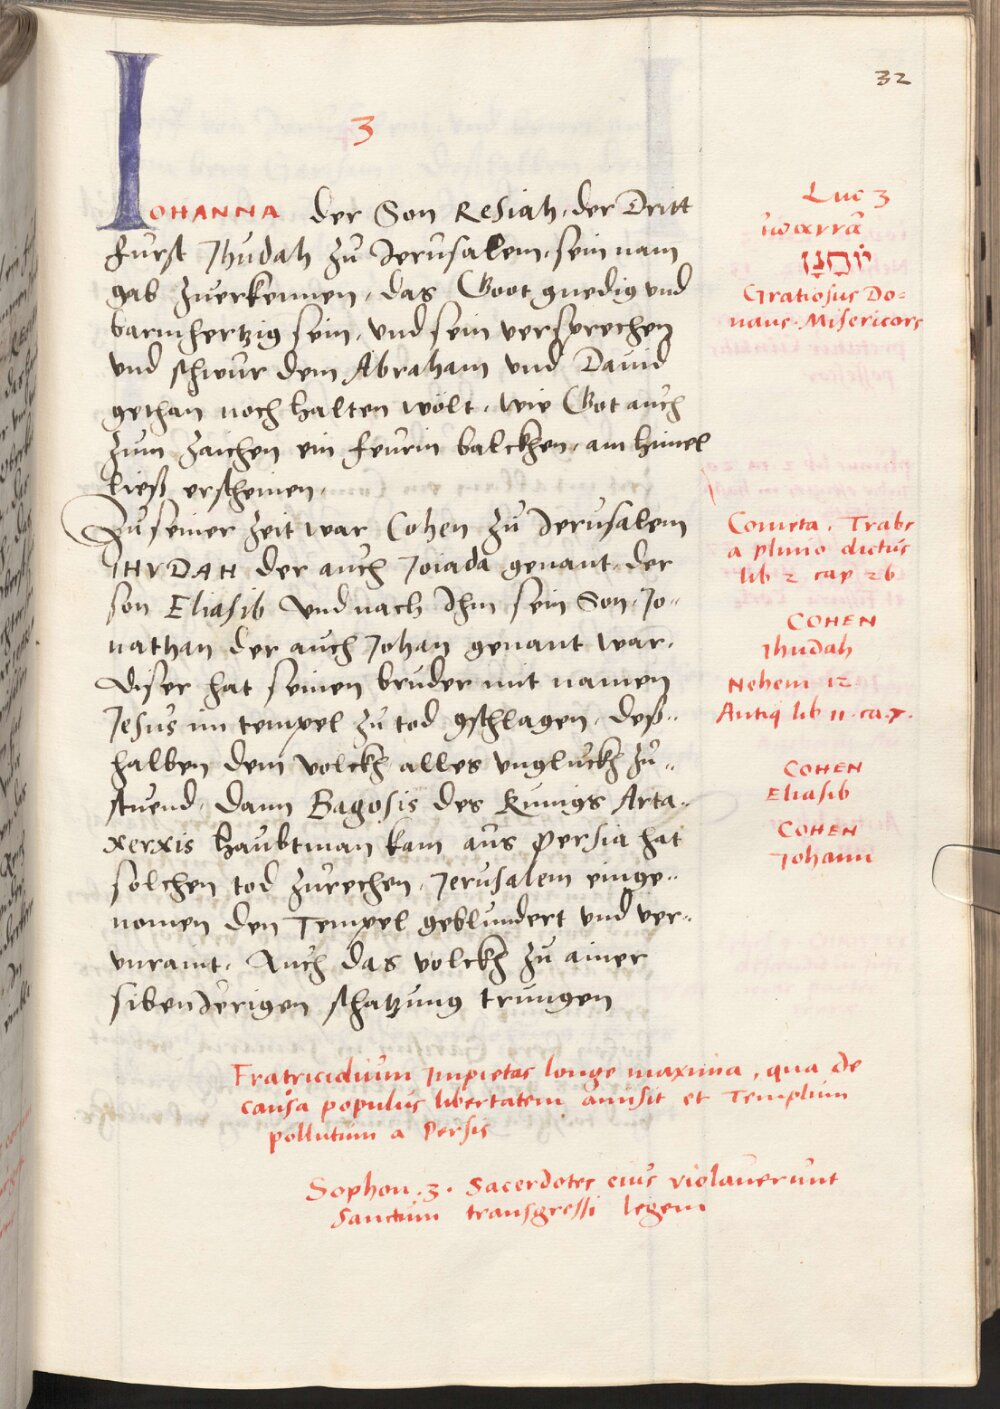 32
3
IOHANNA der Son Resiah, der Dritt
furst Jhudah zu Jerusalem, sein nam
gab zuerkennen, das Goot gnedig vnd
barmhertzig sein, vnd sein versprechen
vnd schwur dem Abraham vnd David
gethan noch halten wölt, wie Got auch
zum zaichen ein feurin balckhen, am himel
ließ erscheinen,
Zu seiner zeit war Cohen zu Jerusalem
IHVDAH der auch Joiada genant, der
son Eliasib vnd nach Ihm sein Son, Jo-
nathan der auch Johan genant war.
diser hat seinen bruder mit namen
Jesus im tempel zu tod gschlagen, deß-
halben dem volckh alles vngluckh zu-
stuend, dann Bagosis des Kunigs Arta-
xerxis haubtman kam aus Persia hat
solchen tod zurechen, Jerusalem einge-
nomen den Tempel geblundert vnd ver-
vnraint, Auch das volckh zu ainer
sibenJerigen schatzung trungen
Luc 3
ιωαννα
יוֹחָנָן
Gratiosus Do=
nans. Misericors
Cometa, Trabs
a plinio dictus
lib 2 cap 26
COHEN
Jhudah
Nehem 12.
Antiq lib 11. ca.7.
COHEN
Eliasib
COHEN
Johann
Fratricidium Impietas longe maxima, qua de
causa populus libertatem amisit et Templum
pollutum a Persis
Sophon. 3. Sacerdotes eius violauerunt
Sanctum transgressi legem